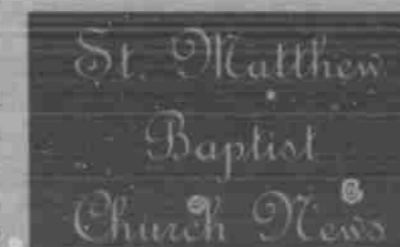 St. Matthew
Baptist
Church News